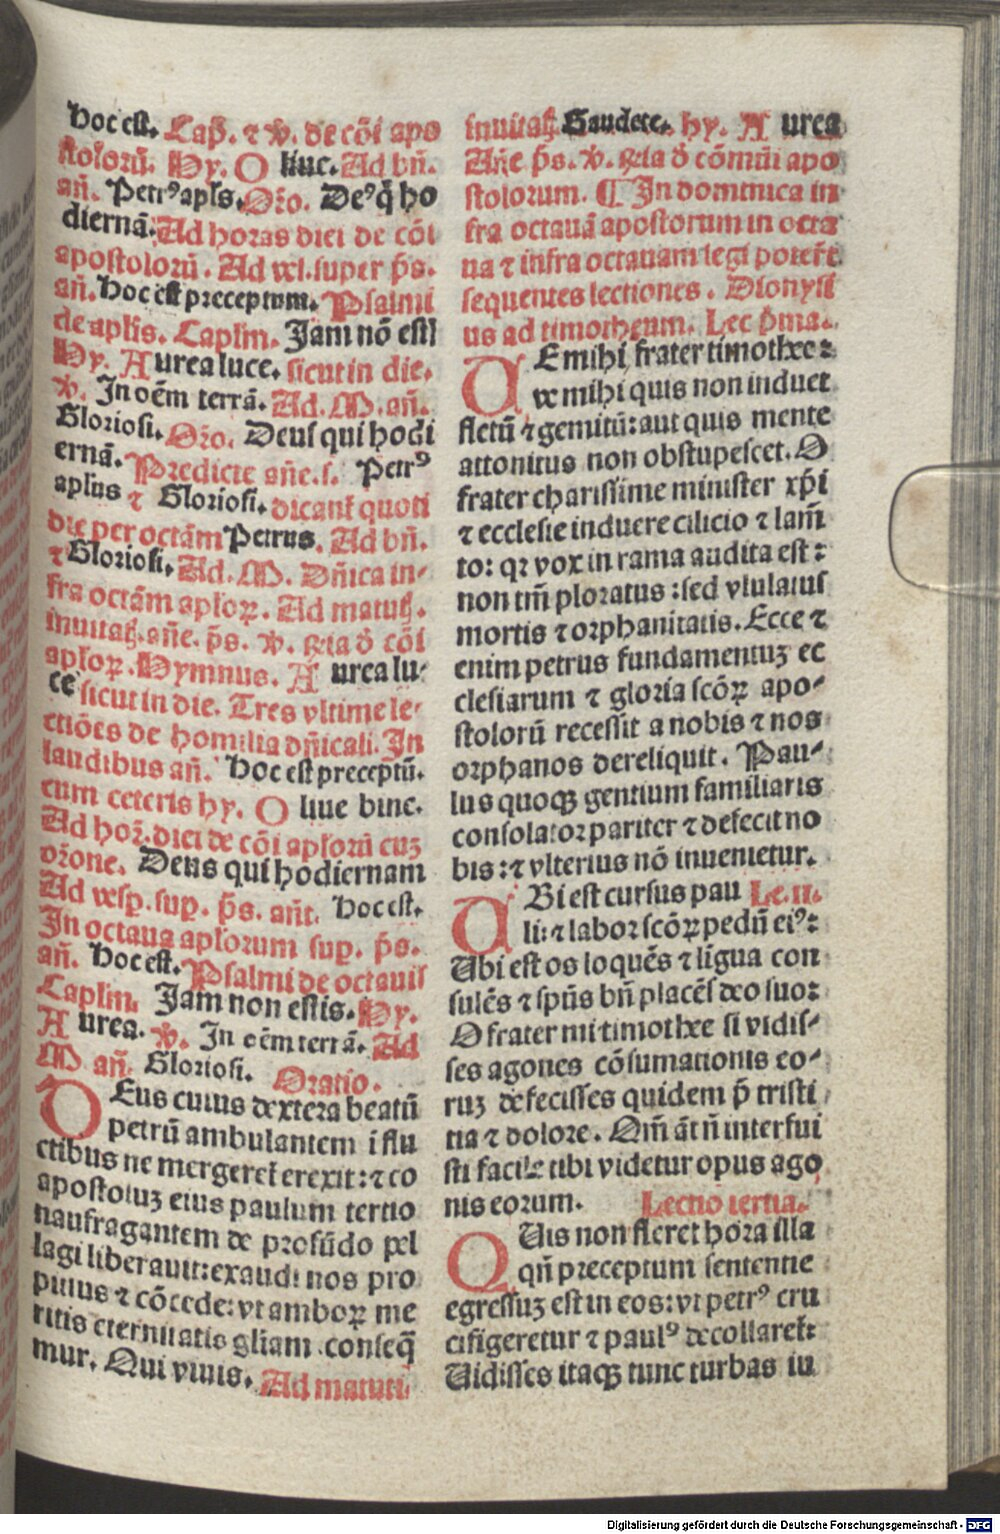 hoc est. Cap̃. ⁊ ℣. de cõi apo
stolorũ. Hy. O liue. Ad bñ.
añ. Petrꝰ apl̃s. Oĩo. Deꝰ q̃ ho
diernã. Ad horas diei de cõi
apostolorũ. Ad vṡ. super p̃s.
añ. Hoc est preceptum. Psalmi
de apl̃is. Caplm̃. Jam nõ estl
Hy. A urea luce. sicut in die.
℣. In oẽm terrã. Ad. M. añ.
Gloriosi. Oĩo. Deus qui hodi
ernã. Predicte añe.s. Petrꝰ
apl̃us ⁊ Gloriosi. dicant̃ quoti
die per octãm Petrus. Ad bñ.
⁊ Gloriosi. Ad. M. Dñica in-
fra octãm apl̃oꝝ. Ad matut̃.
inuitat̃. añe. p̃s. ℣. ꝶia ð cõi
apl̃oꝝ. Hymnus. A urea lu-
ce sicut in die. Tres vltime le-
ctiões de homilia dñicali. In
laudibus añ. Hoc est preceptũ.
cum ceteris hy. O liue bine.
Ad hoꝝ. diei de cõi apl̃orũ cuꝫ
oĩone. Deus qui hodiernam
Ad vesp̃. sup̃. p̃s. añt. Hoc est.
In octaua apl̃orum sup̃. p̃s.
añ. Hoc est. Psalmi de octauis
Caplm̃. Jam non estis. Hy.
A urea. ℣. In oẽm terrã. Ad
M añ. Gloriosi. Oratio.
DEus cuius dextera beatũ
petrũ ambulantem i flu
ctibus ne mergeret̃ erexit: ⁊ co
apostoluꝫ eius paulum tertio
naufragantem de profũdo pel
lagi liberauit: exaudi nos pro
pitius ⁊ cõcede: vt amboꝝ me
ritis eternitatis gl̃iam conseq̃
mur. Qui viuis. Ad matuti
inuitat̃. Gaudete. hy. A urea
Añe p̃s. ℣. ꝶia ð cõmũi apo
stolorum. ¶ In dominica in
fra octauã apostorum in octa
ua ⁊ infra octauam legi poter̃t
sequentes lectiones. Dionysi
us ad timotheum. Lec p̃ma.
UE mihi frater timothee:
ve mihi quis non induet
fletũ ⁊ gemitũ: aut quis mente
attonitus non obstupescet. O
frater charissime minister xp̃i
⁊ ecclesie induere cilicio ⁊ lam̃
to: qꝛ vox in rama audita est:
non tm̃ ploratus: sed vlulatus
mortis ⁊ orphanitatis. Ecce ⁊
enim petrus fundamentuꝫ ec
clesiarum ⁊ gloria scõꝝ apo-
stolorũ recessit a nobis ⁊ nos
orphanos dereliquit. Pau-
lus quoqꝫ gentium familiaris
consolator pariter ⁊ defecit no
bis: ⁊ vlterius nõ inuenietur.
UBi est cursus pau Le. ii.
li: ⁊ labor scõꝝ pedũ eiꝰ:
Ubi est os loquẽs ⁊ lĩgua con
sulẽs ⁊ sp̃us bñ placẽs deo suo:
O frater mi timothee si vidis-
ses agones cõsumationis eo-
ruꝫ defecisses quidem p̃ tristi
tia ⁊ dolore. Qm̃ ãt ñ interfui
sti facile tibi videtur opus ago
nis eorum. Lectio tertia.
QUis non fleret hora illa
qñ preceptum sententie
egressuꝫ est in eos: vt petrꝰ cru
cifigeretur ⁊ paulꝰ decollaret̃:
Uidisses itaqꝫ tunc turbas iu
Digitalisierung gefördert durch die Deutsche Forschungsgemeinschaft - DFG